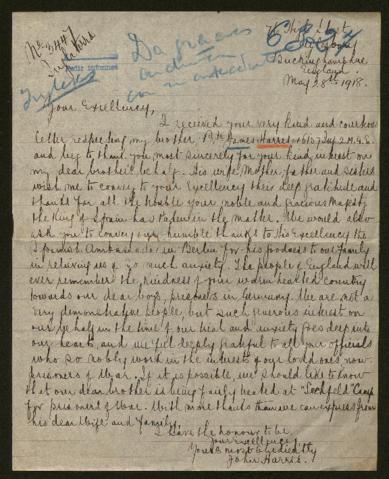 No 3447
High Street
Buckinghamshire
England.
May 28th 1918.
Inglés
Da gracias
Your Excellency,
I received your very kind and courteous
letter respecting my brother Pte James Harris
and beg to thank you most sincerely for your kind interest on
my dear brother's behalf. His wife, Mother, father and sisters
wish me to convey to your Excellency their deep gratitude and
thanks for all the trouble your noble and gracious Majesty
the King of Spain has taken in the matter. We would also
ask you to convey our humble thanks to His Excellency the
Spanish Ambassador in Berlin for his goodness to our family
in relieving us of so much anxiety. The people of England will
ever remember the kindness of your warm hearted country
towards our dear boys, prisoners in Germany. We are not a
very demonstrative people, but such generous interest on
our behalf in the time of our need and anxiety goes deep into
our hearts, and we feel deeply grateful to all your officials
who so nobly work in the interests of our loved ones now
prisoners of War. If it is possible, we should like to know
that our dear brother is being fairly treated at "Lechfeld" Camp
for prisoners of War. With more thanks than we can express from
his dear Wife and Family,
I have the honour to be,
your excellency,
Yours most obediently
John Harris.